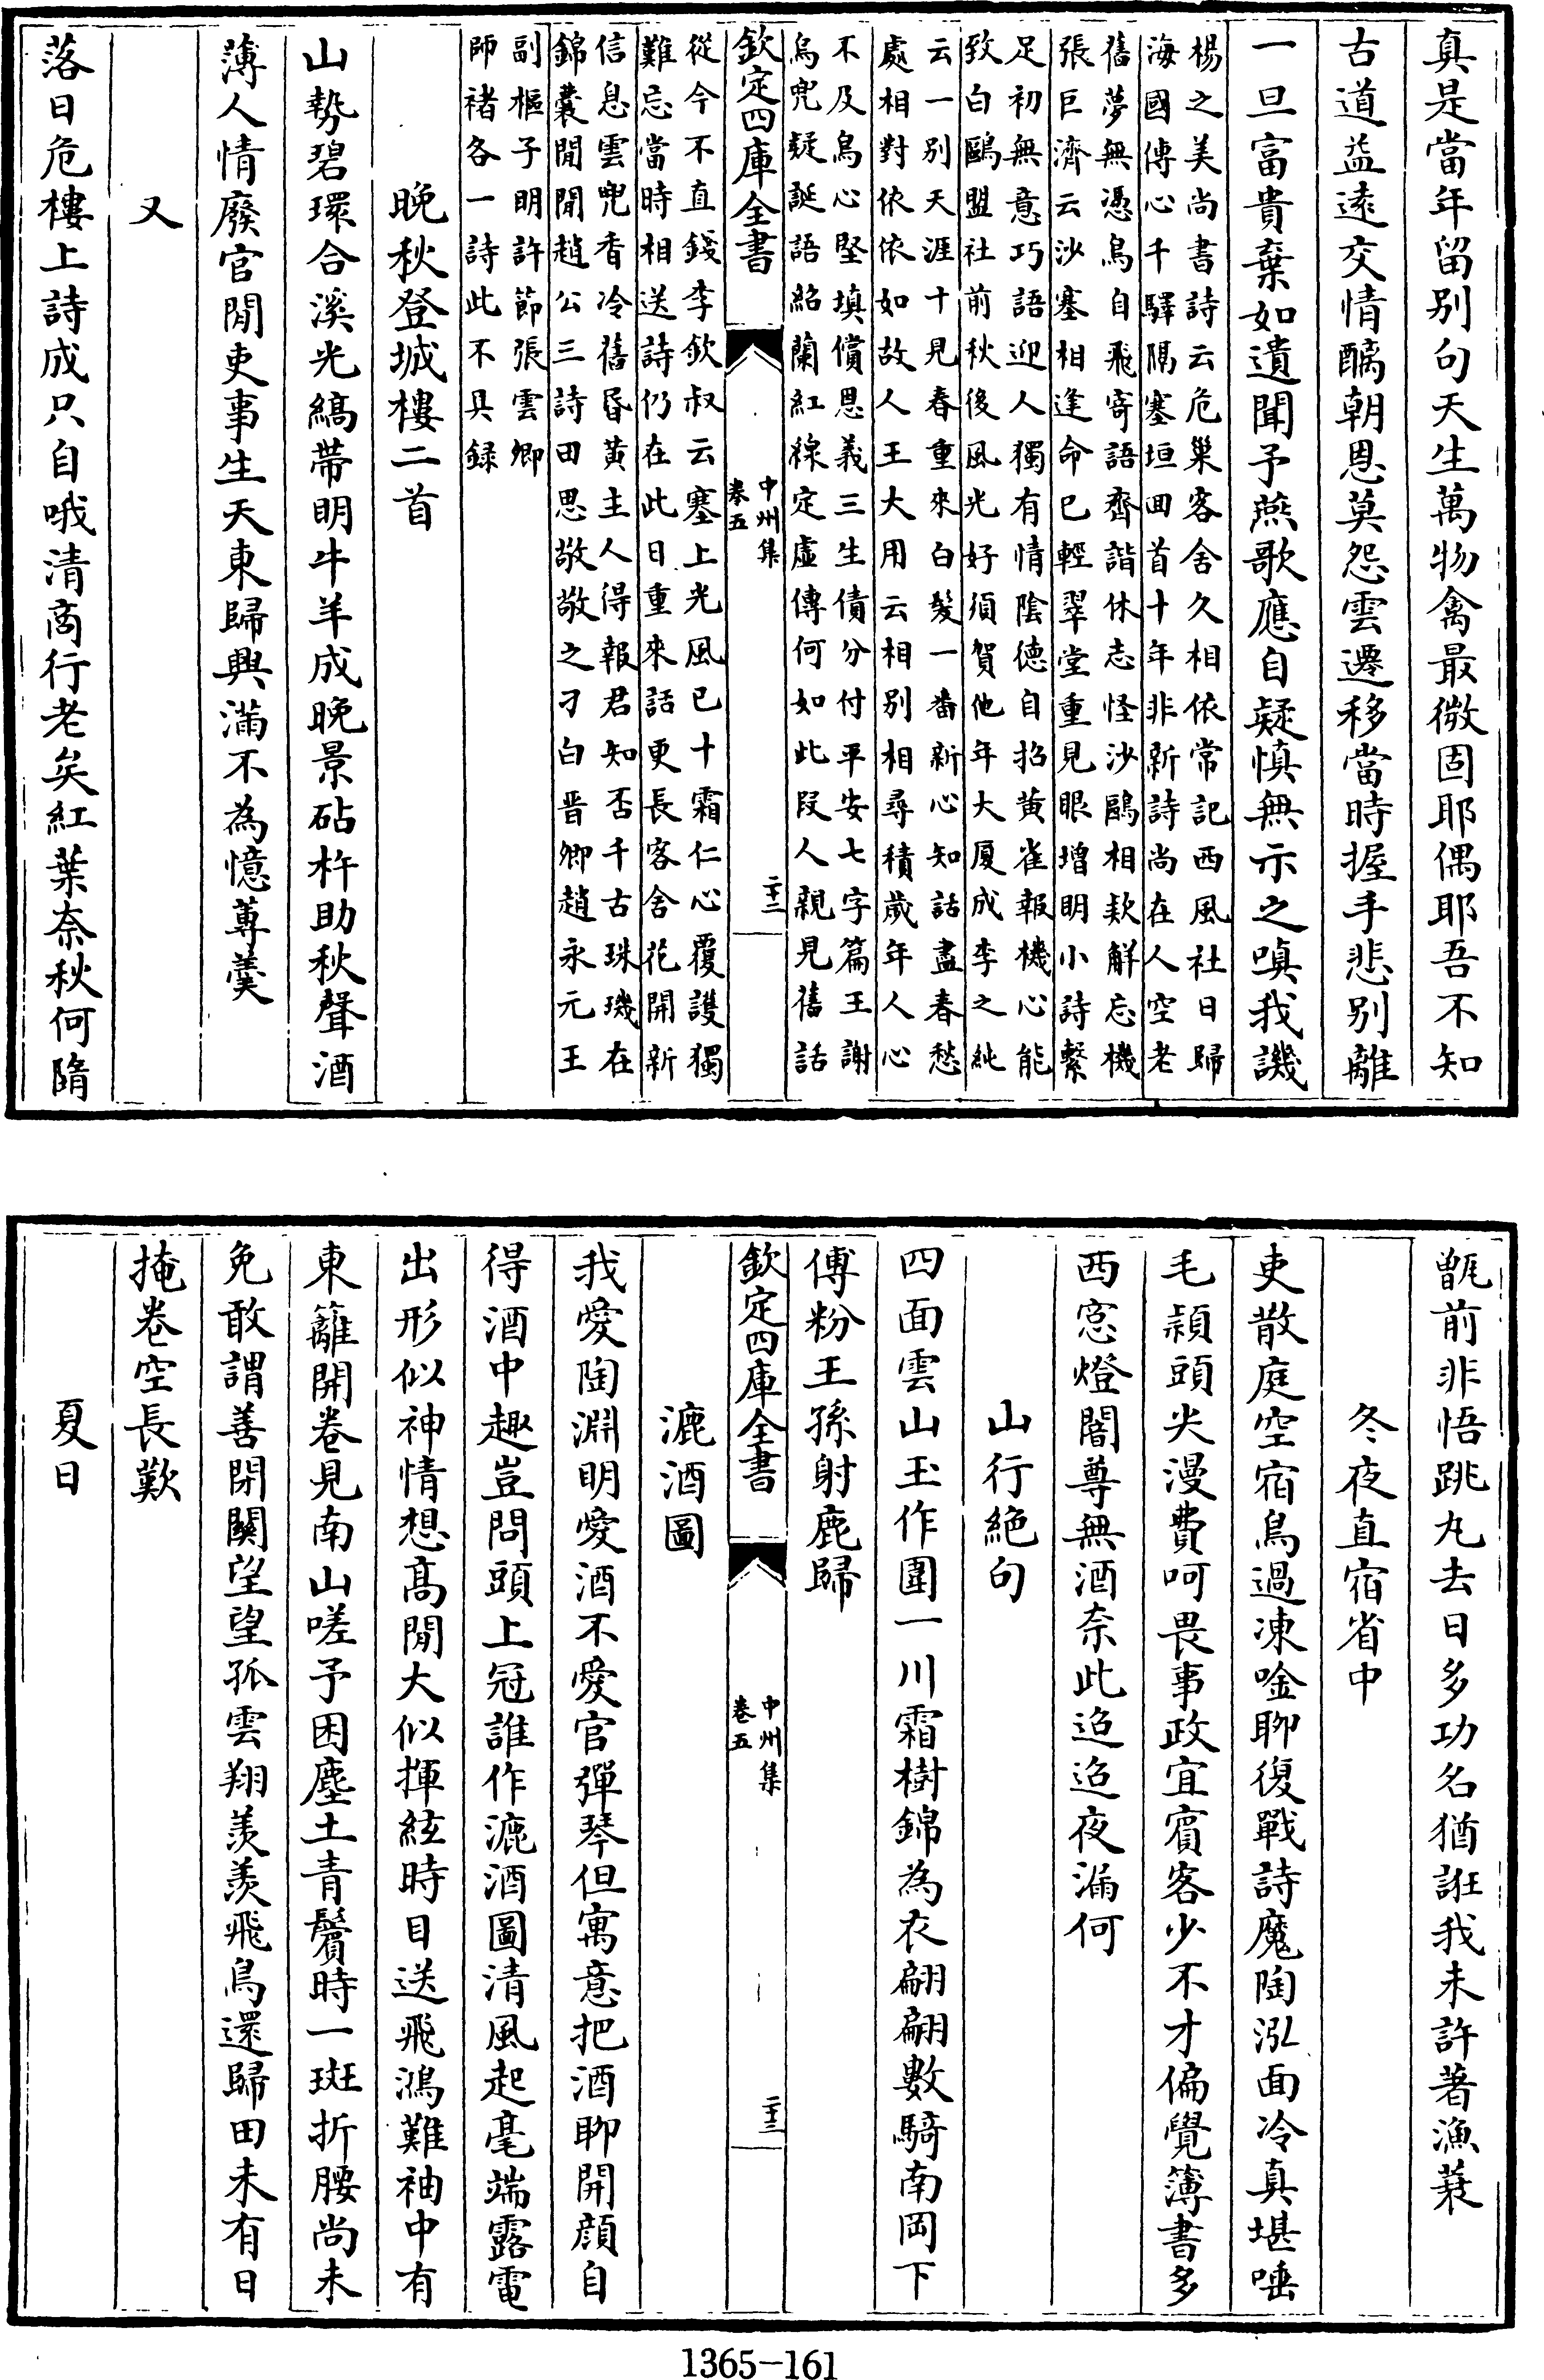 真是當年留别句天生萬物禽最微固耶偶耶吾不知
古道益逺交情醨朝恩莫怨雲遷移當時握手悲别離
一旦富貴棄如遺聞予燕歌應自疑慎無示之嗔我譏
楊之美尚書詩云危巢客舎久相依常記西風社日歸
海國傳心千驛隔塞垣囬首十年非新詩尚在人空老
舊夢無憑鳥自飛寄語齊諧休志怪沙鷗相款觧忘機
張巨濟云沙塞相逢命已輕翠堂重見眼増明小詩繫
足初無意巧語迎人獨有情隂徳自招黄雀報機心能
致白鷗盟社前秋後風光好須賀他年大厦成李之純
云一别天涯十見春重來白髮一番新心知話盡春愁
處相對依依如故人王大用云相别相尋積歲年人心
不及鳥心堅填償恩義三生債分付平安七字篇王謝
烏兜疑誕語紿蘭紅線定虚傳何如此段人親見舊話
欽定四庫全書
中州集
卷五
二十二
從今不直錢李欽叔云塞上光風已十霜仁心覆護獨
難忘當時相送詩仍在此日重來話更長客舎花開新
信息雲兜香冷舊昏黄主人得報君知否千古珠璣在
錦囊閒閒趙公三詩田思敬敬之刁白晋卿趙永元王
副樞子明許節張雲卿
師禇各一詩此不具録
晚秋登城樓二首
山勢碧環合溪光縞帶明牛羊成晚景砧杵助秋聲酒
薄人情廢官閒吏事生天東歸興滿不為憶蓴羮
又
落日危樓上詩成只自哦清商行老矣紅葉奈秋何隋
甑前非悟跳丸去日多功名猶誑我未許著漁蓑
冬夜直宿省中
吏散庭空宿鳥過凍唫聊復戰詩魔陶泓面冷真堪唾
毛潁頭尖漫費呵畏事政宜賔客少不才偏覺簿書多
西窓燈闇尊無酒奈此迢迢夜漏何
山行絶句
四面雲山玉作圍一川霜樹錦為衣翩翩數騎南岡下
傅粉王孫射鹿歸
欽定四庫全書
中州集
卷五
二十三
漉酒圖
我愛陶淵明愛酒不愛官彈琴但寓意把酒聊開顔自
得酒中趣豈問頭上冠誰作漉酒圖清風起毫端露電
出形似神情想髙閒大似揮絃時目送飛鴻難袖中有
東籬開卷見南山嗟予困塵土青鬢時一斑折腰尚未
免敢謂善閉闗望望孤雲翔羨羨飛鳥還歸田未有日
掩卷空長歎
夏日
1365-161